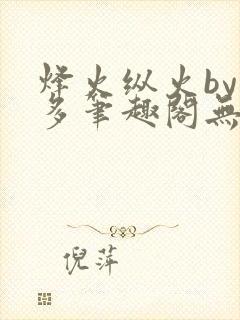 烽火纵火by
多笔趣阁無
倪萍